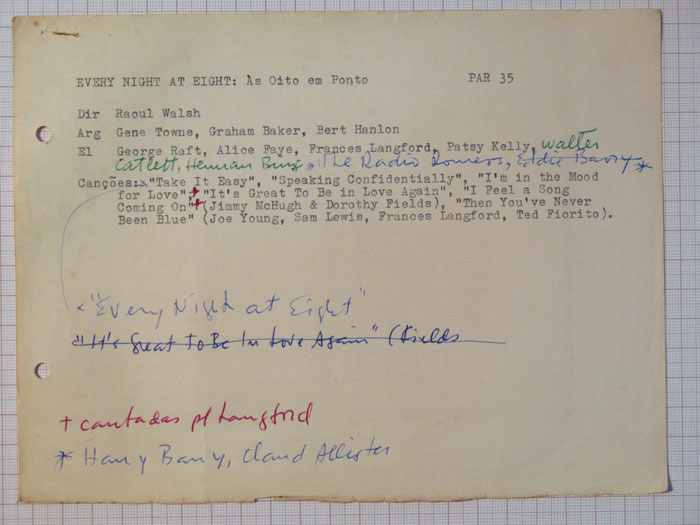 EVERY NIGHT AT EIGHT: Às Oito em Ponto PAR 35
Dir Raoul Walsh
Arg Gene Towne, Graham Baker, Bert Hanlon
El George Raft, Alice Faye, Frances Langford, Patsy Kelly, Walter
Catlett, Herman Bing, The Radio Romers, Eddie Barry *
Canções: x "Take It Easy", "Speaking Confidentially", "I'm in the Mood
for Love", + "It's Great To Be in Love Again", "I Feel a Song
Coming On" + (Jimmy McHugh & Dorothy Fields), "Then You've Never
Been Blue" (Joe Young, Sam Lewis, Frances Langford, Ted Fiorito).
x "Every Night at Eight"
"It's Great To Be In Love Again" (Fields
+ cantadas p/ Langford
* Harry Barry, Claud Allister